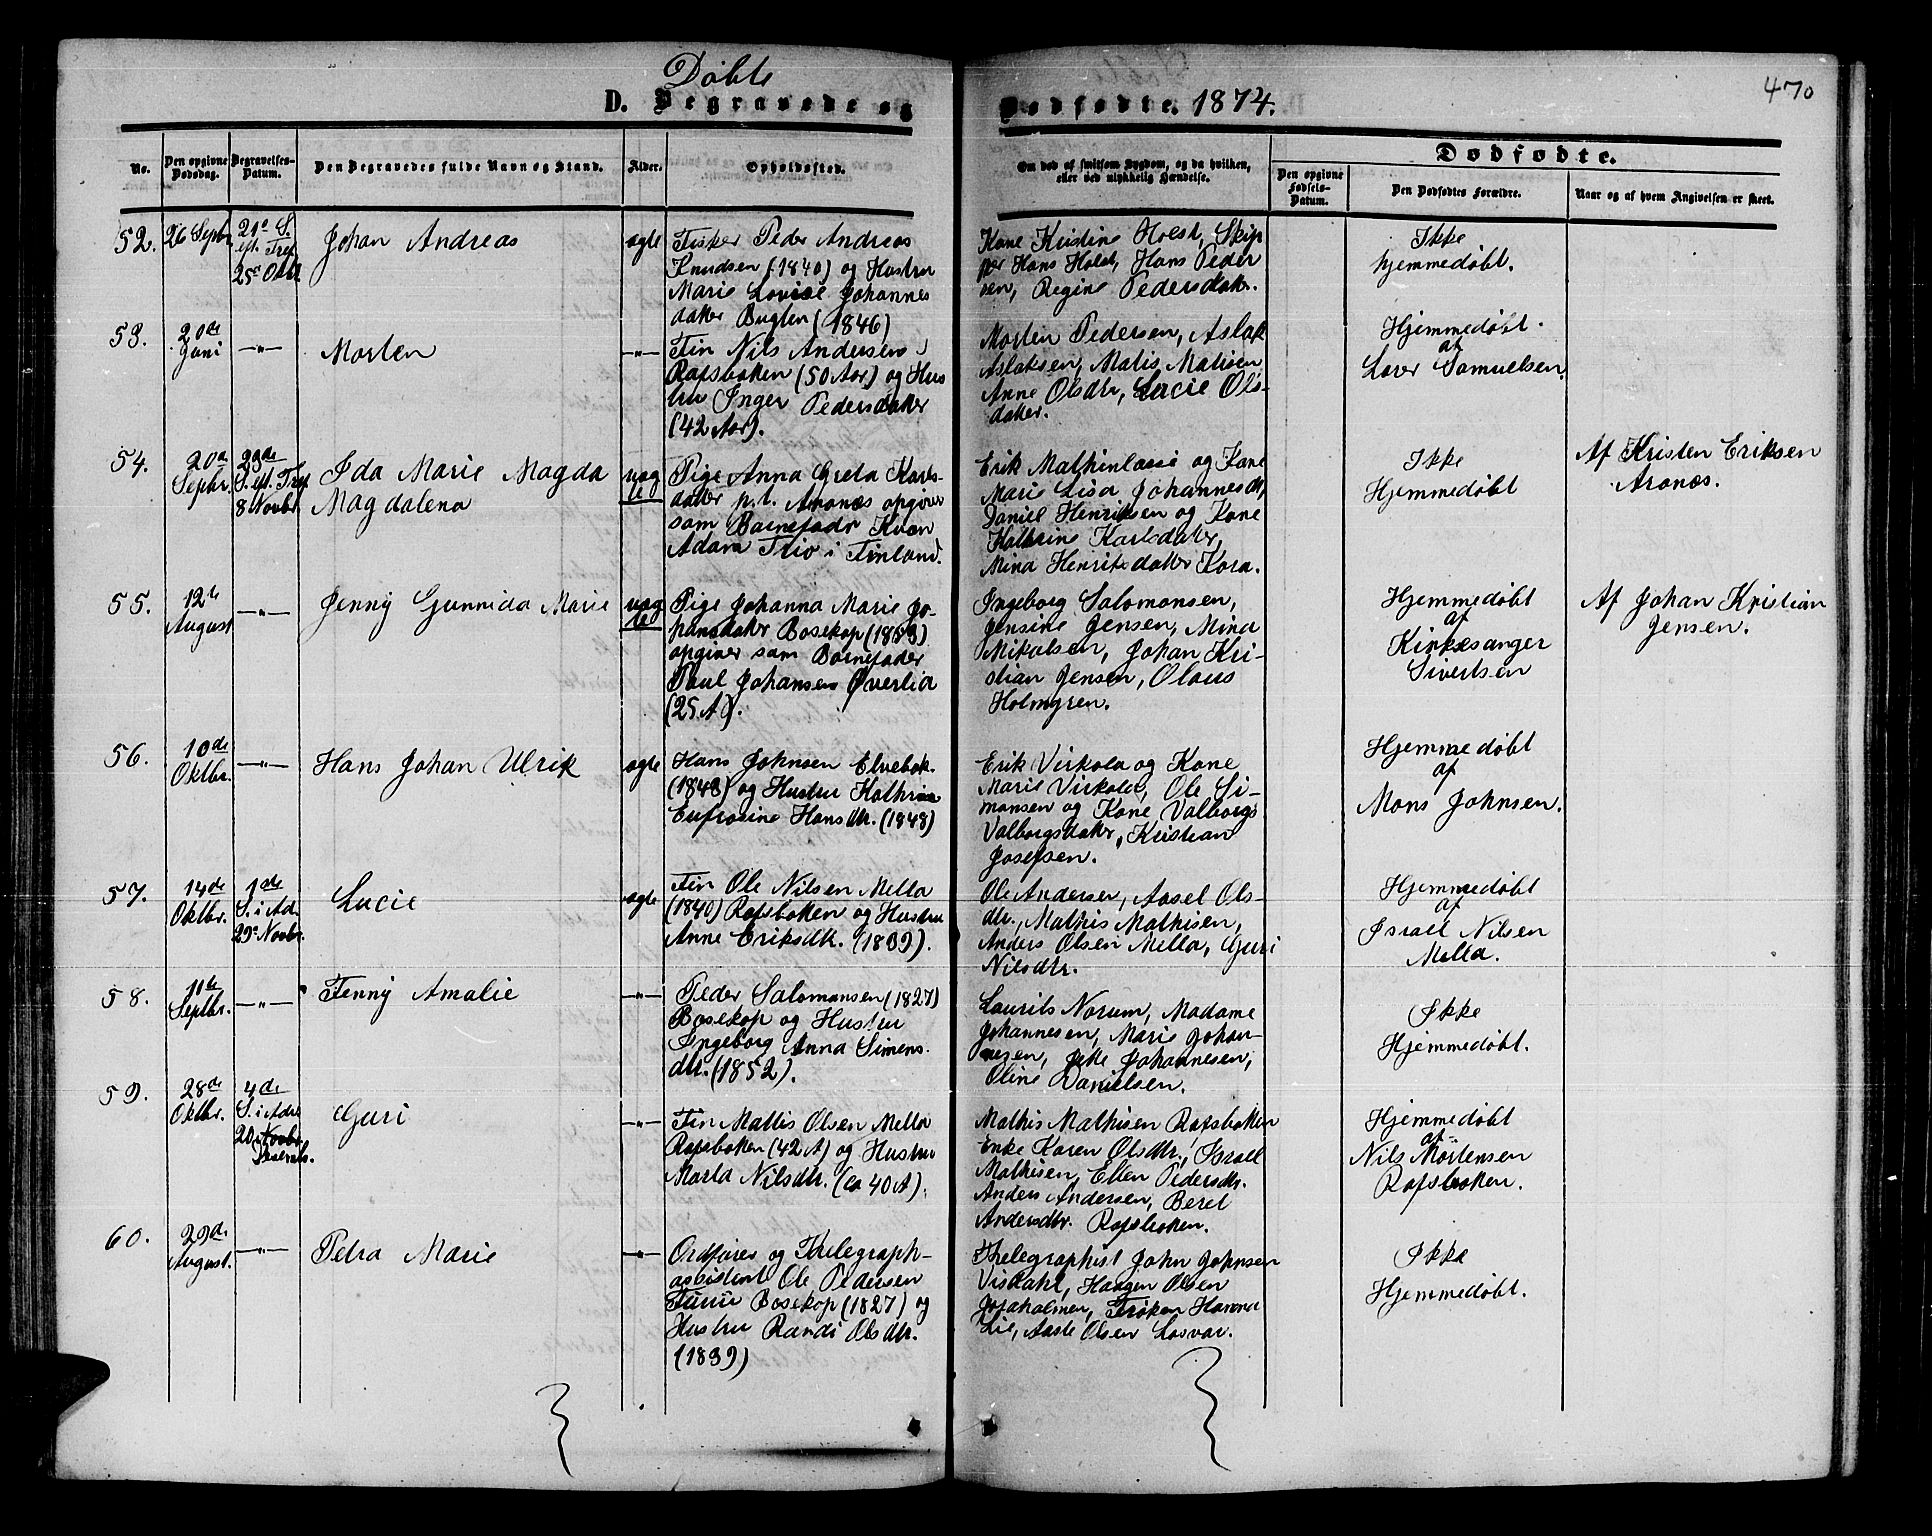 Døbte
D. Begravede og
Dødfødte. 1874.
470
No.
Den opgivne Dødsdag.
Begravelses-Datum.
Den Begravedes fulde Navn og Stand.
Alder.
Opholdssted.
Om død af smitsom Sygdom, og da hvilken,
eller ved ulykkelig Hændelse.
Dødfødte.
Den opgivne Fødsels-Datum.
Den Dødfødtes Forældre.
Naar og af hvem Angivelsen er skeet.
52.
26 Septbr
21de S.
eft. Tref
25de Oktbr
Johan Andreas
ægte
Fisker Peder Andreas
Knudsen (1840) og Hustru
Marie Lovise Johannes
datter Bugten (1846)
Kone Kristine Holst, Skip
per Hans Holst, Hans Peder
sen, Regine Pedersdatter.
Ikke
hjemmedøbt.
53.
20de
Juni
—"—
Morten
—"—
Fin Nils Andersen
Rafsbotten (50 Aar) og Hus
tru Inger Pedersdatter
(42 Aar).
Morten Pedersen, Aslak
Aslaksen, Matis Matisen,
Anne Olsdtr, Lucie Ols-
datter.
Hjemmedøbt
af
Laver Samuelsen.
54.
20de
Septbr.
23de
S. eft. Tref
8 Novbr
Ida Marie Magda
Magdalena
uæg
te
Pige Anna Greta Karls-
datter p.t. Aronæs opgiver
som Barnefader Kvæn
Adam Trio i Finland.
Erik Mathinlassi og Kone
Marie Lisa Johannesdtr,
Daniel Henriksen og Kone
Kathrine Karlsdatter,
Mina Henriksdatter Kora.
Ikke
Hjemmedøbt
Af Kristen Eriksen
Aronæs.
55.
12te
August
—"—
Jenny Gunnida Marie
uæg
te
Pige Johanna Marie Jo-
hansdatter Bosekop (1853)
opgiver som Barnefader
Paul Johansen Øverlid
(25 A).
Ingeborg Salomonsen,
Jensine Jensen, Mina
Mikalsen, Johan Kri-
stian Jensen, Olaus
Holmgren.
Hjemmedøbt
af
Kirkesanger
Sivertsen
Af Johan Kristian
Jensen.
56.
10de
Oktbr.
—"—
Hans Johan Ulrik
ægte
Hans Johnsen Elvebak.
(1843) og Hustru Kathrine
Eufrosine Hansdtr. (1848)
Erik Virkola og Kone
Marie Virkola, Ole Si-
monsen og Kone Valborgs
Valborgsdatter, Kristian
Josefsen.
Hjemmedøbt
af
Mons Johnsen.
57.
14de
Oktbr.
1ste
S. i Adv.
29de Novbr.
Lucie
ægte
Fin Ole Nilsen Mella
(1840) Rafsbotten og Hustru
Anne Eriksdtr. (1839).
Ole Andersen, Aasel Ols-
dtr., Mathis Mathisen,
Anders Olsen Mella, Guri
Nilsdtr.
Hjemmedøbt
af
Israel Nilsen
Mella.
58.
11te
Septbr.
—"—
Fenny Amalie
—"—
Peder Salomonsen (1827)
Bosekop og Hustru
Ingeborg Anna Simens
dtr. (1852).
Laurits Norum, Madame
Johannesen, Marie Johan-
nesen, Johannesen,
Oline Danielsen.
Ikke
Hjemmedøbt.
59.
28de
Oktbr.
4de
S. i Adv
20 Novbr
Decembr.
Guri
—"—
Fin Mattis Olsen Mella
Rafsbotten (42 A) og Hustru
Marta Nilsdtr. (ca 40 A).
Mathis Mathisen Rafsbotten
Enke Karen Olsdtr., Israel
Mathisen, Ellen Pedersdtr.
Anders Andersen, Beret
Andersdtr. Rafsbotten.
Hjemmedøbt
af
Nils Mortensen
Rafsbotten.
60.
29de
August.
—"—
Petra Marie
—"—
Ordfører og Thelegraph-
assistent Ole Pedersen
Bosekop (1827) og
Hustru Randi Olsdtr.
(1839)
Thelegraphist John Johnsen
Visdahl, Haagen Olsen
Jøraholmen, Frøken Hanna
Lie, Aaste Olsen Losvar.
Ikke
Hjemmedøbt.